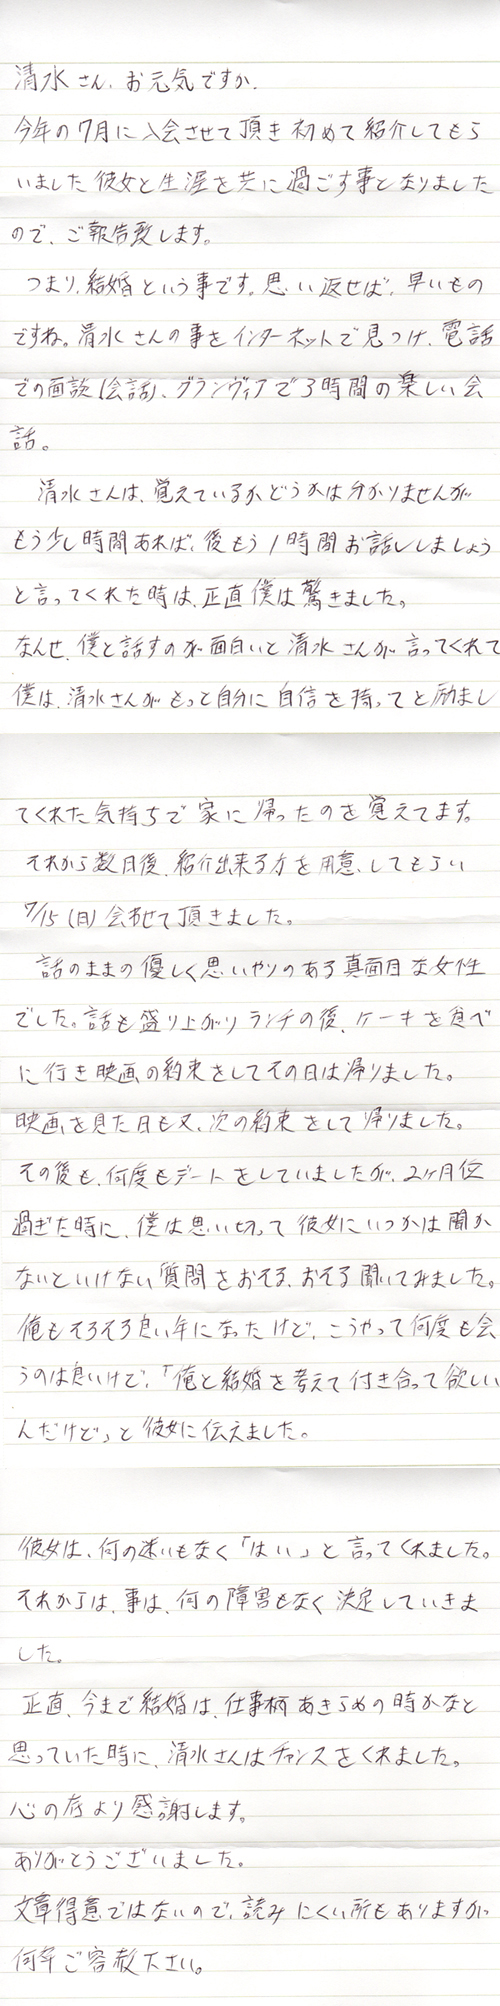 清水さん、お元気ですか。
今年の7月に入会させて頂き初めて紹介してもら
いました彼女と生涯を共に過ごす事となりました
ので、ご報告致します。
つまり、結婚という事です。思い返せば、早いもの
ですね。清水さんの事をインターネットで見つけ、電話
での面談(会話)、グランヴィアで3時間の楽しい会
話。
清水さんは、覚えているかどうかは分かりませんが
もう少し時間あれば、後もう1時間お話ししましょう
と言ってくれた時は、正直僕は驚きました。
なんせ、僕と話すのが面白いと清水さんが言ってくれて
僕は、清水さんがもっと自分に自信を持ってと励まし
てくれた気持ちで家に帰ったのを覚えてます。
それから数日後、紹介出来る方を用意してもらい
7/15(日)会わせて頂きました。
話のままの優しく思いやりのある真面目な女性
でした。話も盛り上がりランチの後、ケーキを食べ
に行き映画の約束をしてその日は帰りました。
映画を見た日も又、次の約束をして帰りました。
その後も、何度もデートをしていましたが、2ヶ月位
過ぎた時に、僕は思い切って彼女にいつかは聞か
ないといけない質問をおそる、おそる聞いてみました。
俺もそろそろ良い年になったけど、こうやって何度も会
うのは良いけど、「俺と結婚を考えて付き合って欲しい
んだけど」と彼女に伝えました。
彼女は、何の迷いもなく「はい」と言ってくれました。
それからは、事は、何の障害もなく決定していきま
した。
正直、今まで結婚は、仕事柄あきらめの時かなと
思っていた時に、清水さんはチャンスをくれました。
心の底より感謝します。
ありがとうございました。
文章得意ではないので、読みにくい所もありますが、
何卒ご容赦下さい。